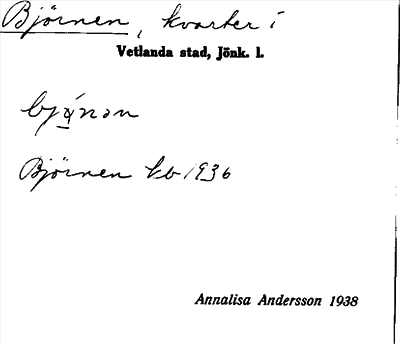 Björnen, kvarter i
Vetlanda stad, Jönk. l.
Björnen kb 1936
Annalisa Andersson 1938